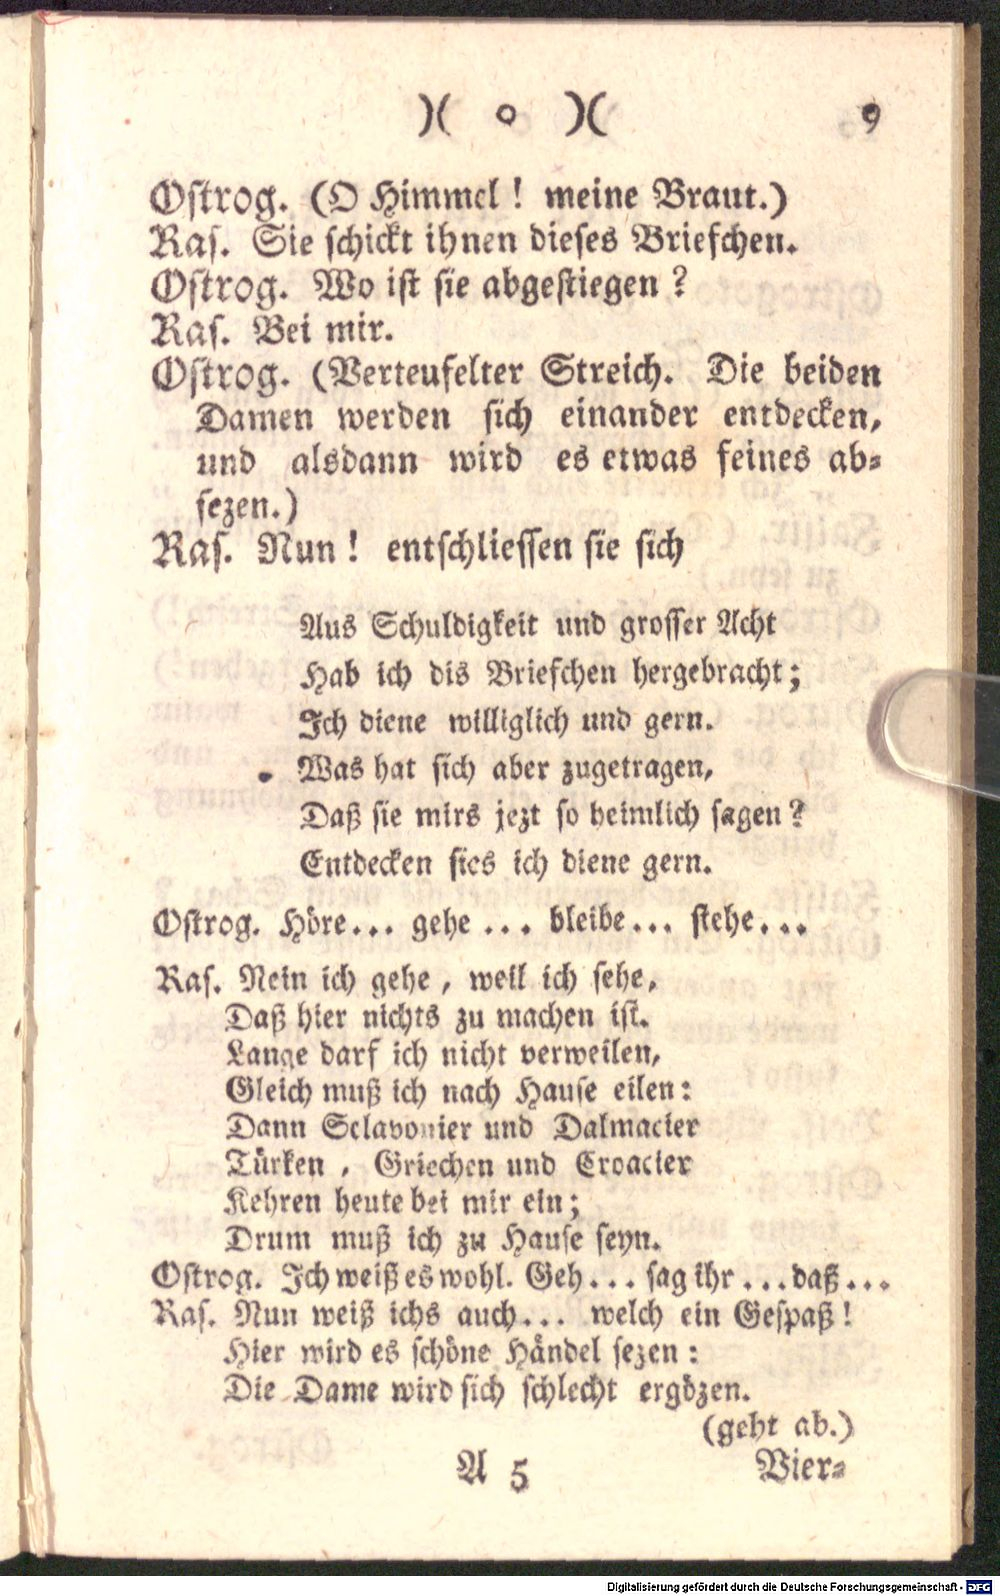 )( o )( 9
Ostrog. (O Himmel! meine Braut.)
Ras. Sie schickt ihnen dieses Briefchen.
Ostrog. Wo ist sie abgestiegen?
Ras. Bei mir.
Ostrog. (Verteufelter Streich. Die beiden
Damen werden sich einander entdecken,
und alsdann wird es etwas feines ab-
sezen.)
Ras. Nun! entschliessen sie sich
Aus Schuldigkeit und grosser Acht
Hab ich dis Briefchen hergebracht;
Ich diene williglich und gern.
Was hat sich aber zugetragen,
Daß sie mirs jezt so heimlich sagen?
Entdecken sies ich diene gern.
Ostrog. Höre... gehe ... bleibe... stehe...
Ras. Nein ich gehe, weil ich sehe,
Daß hier nichts zu machen ist.
Lange darf ich nicht verweilen,
Gleich muß ich nach Hause eilen:
Dann Sclavonier und Dalmacier
Türken, Griechen und Croacier
Kehren heute bei mir ein;
Drum muß ich zu Hause seyn.
Ostrog. Ich weiß es wohl. Geh... sag ihr ...daß...
Ras. Nun weiß ichs auch... welch ein Gespaß!
Hier wird es schöne Händel sezen:
Die Dame wird sich schlecht ergözen.
(geht ab.)
A 5 Vier-
Digitalisierung gefördert durch die Deutsche Forschungsgemeinschaft - DFG